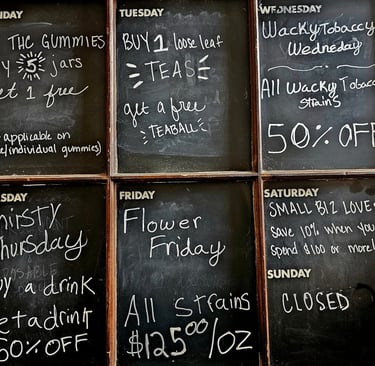 THE GUMMIES
5 jars
et 1 free
applicable on
e/individual gummies)
TUESDAY
BUY 1 loose leaf
TEAS
get a free
TEABALL
WEDNESDAY
Wacky Tobaccy
Wednesday
All Wacky Tobac
strains
50% OFF
SDAY
hirsty
hursday
y a drink
et a drink
50% OFF
FRIDAY
Flower
Friday
All Strains
$125.00/OZ
SATURDAY
SMALL BIZ LOVE:
save 10% when you
spend $100 or more!
SUNDAY
CLOSED